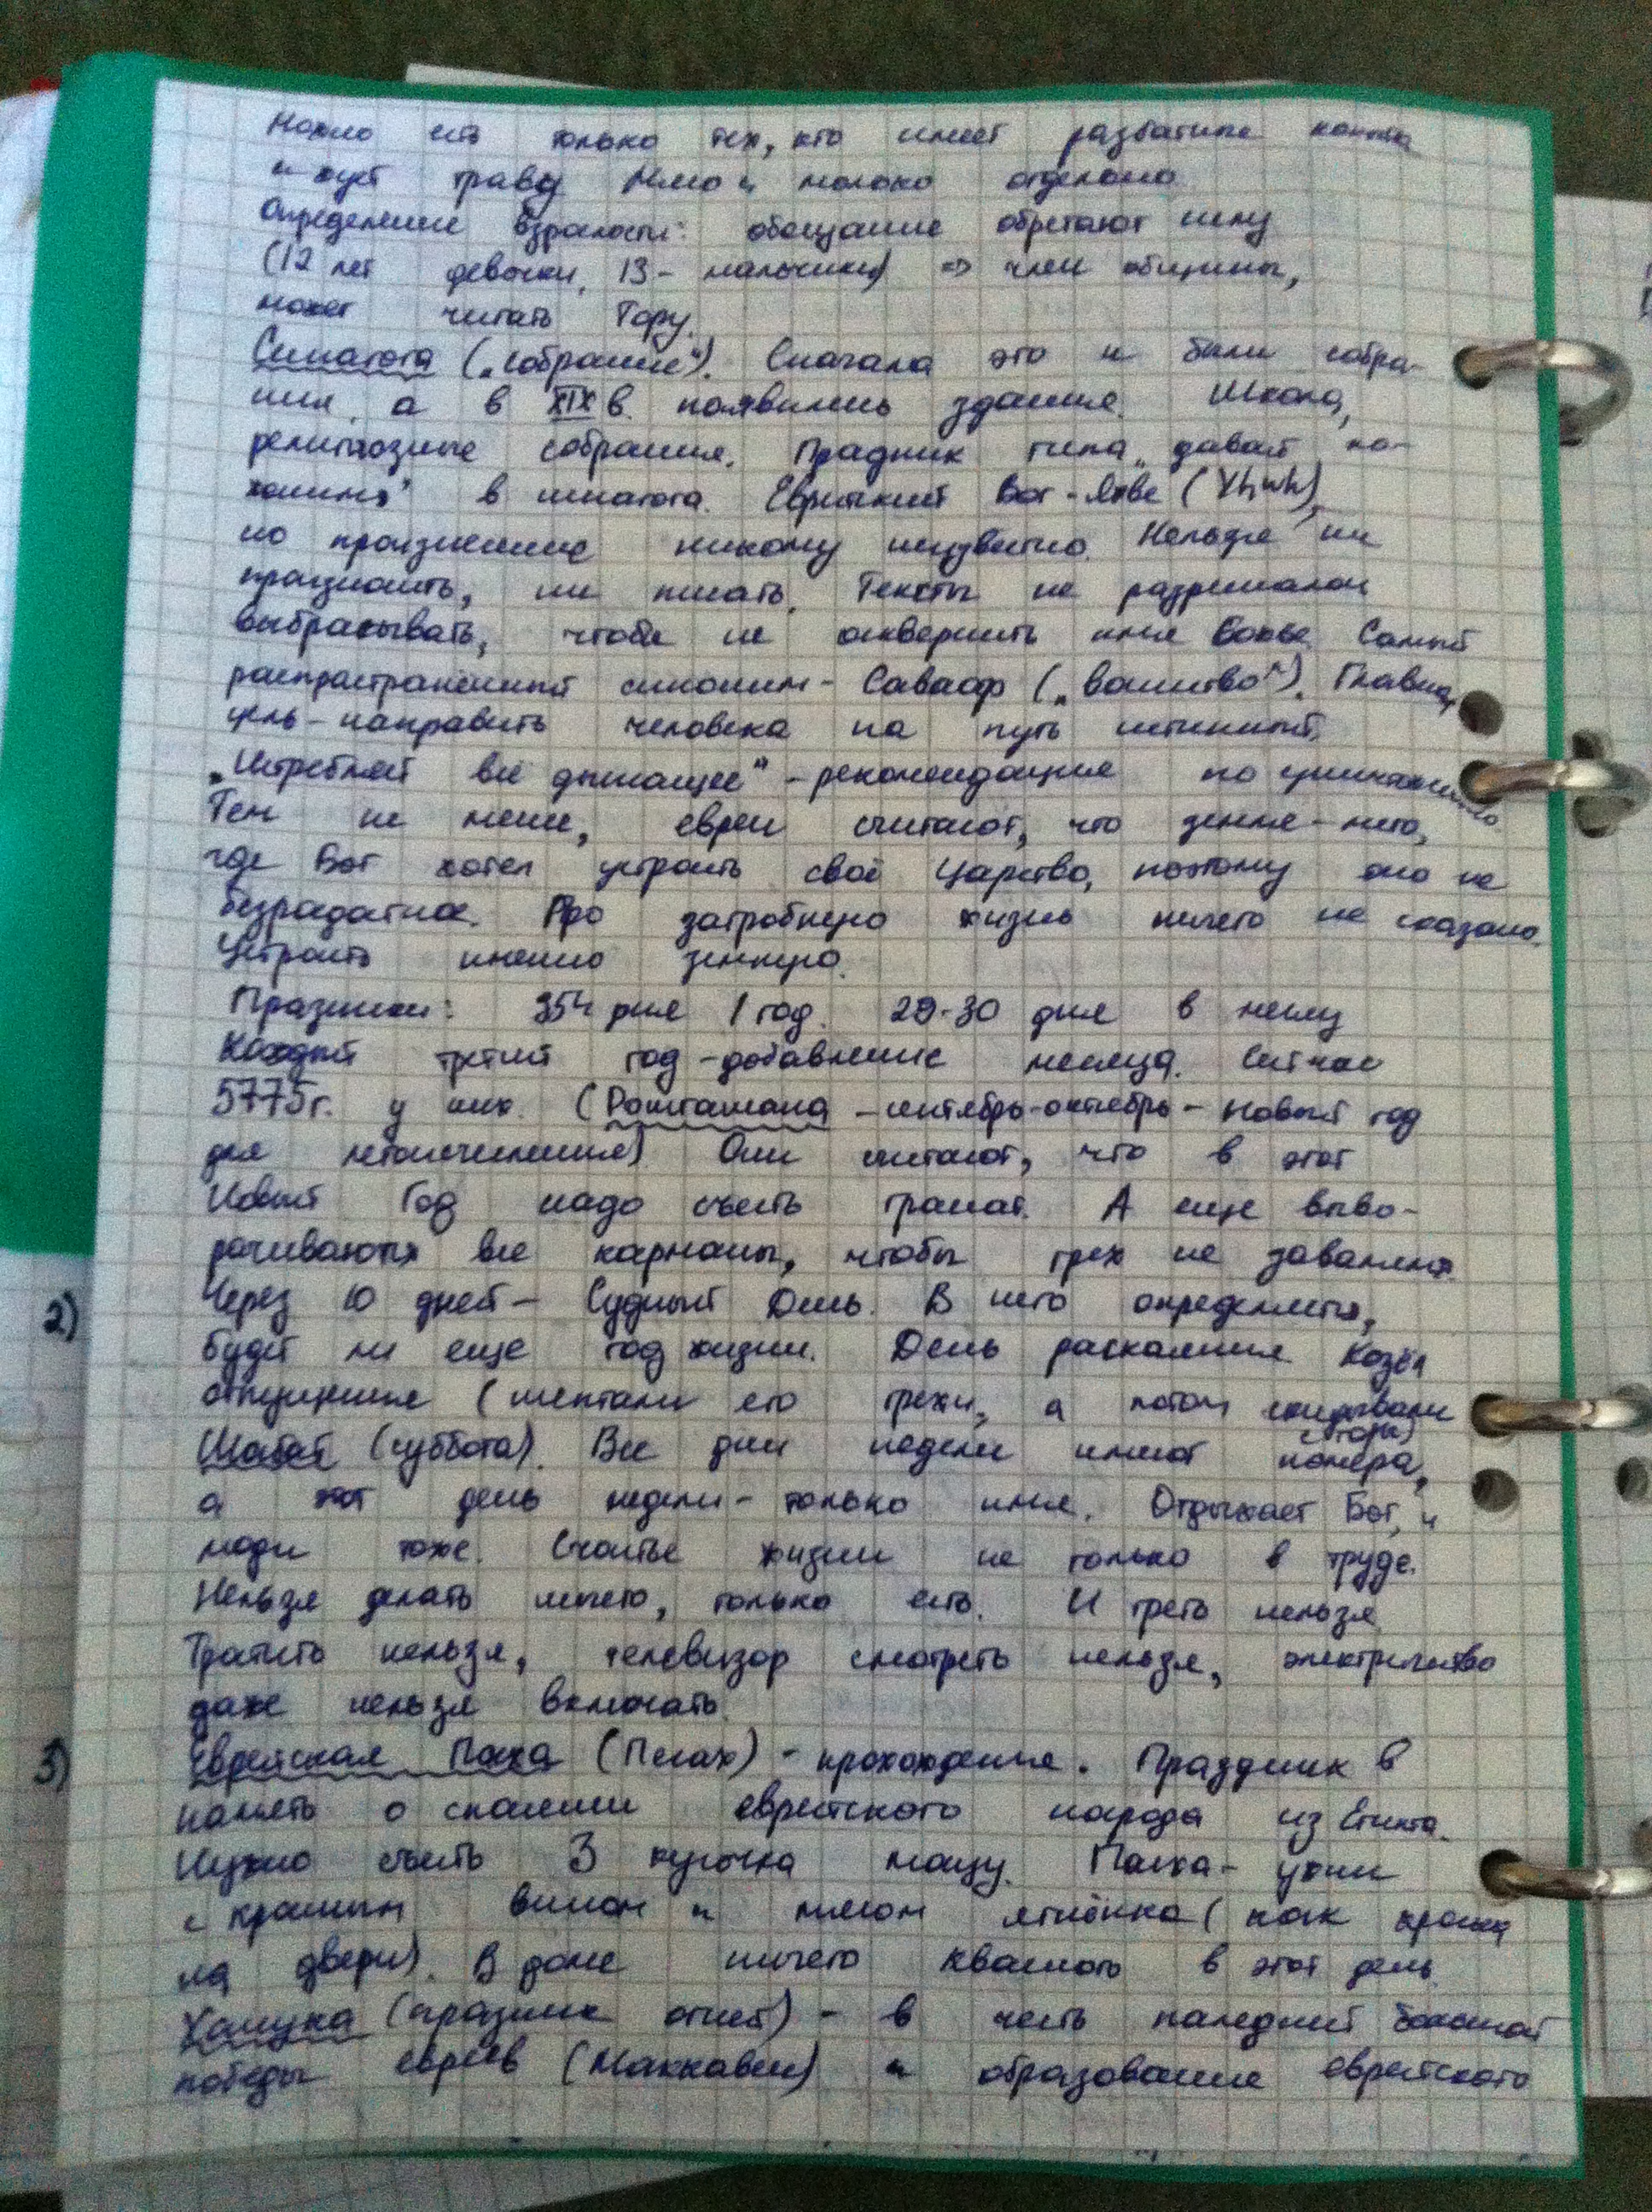 Можно есть только тех, кто имеет разбатые копыта
и жуёт траву. Мясо и молоко отдельно.
Определение взрослости: обещание обретают силу
(12 лет девочки, 13 - мальчики) => член общины,
может читать Тору.
Синагога („собрание"). Сначала это и были собра-
ния, а в XIX в. появились здания. Школа,
религиозные собрания. Праздник типа „давай по-
в синагога. Еврейский Бог - Яхве (Yhwh),
но произнешение никому неизвестно. Нельзя ни
произносить, ни писать. Тексты не разрешалось
выбрасывать, чтобы не осквернить имя Божье. Самый
распространённый синоним - Саваоф („воинство"). Главная
цель - направить человека на путь истинный.
„Истребляй всё дышащее" - рекомендация по уничтожению.
Тем не менее, евреи считают, что земля - место,
где Бог хотел устроить своё Царство, поэтому оно не
безрадостное. Про загробную жизнь ничего не сказано.
Устроить именно земную.
Празники: 354 дня 1 год. 29-30 дня в месяц
Каждый третий год - добавление месяца. Сейчас
5775г. у них. (Рошгашана - сентябрь-октябрь - Новый год
для летоисчисления) Они считают, что в этот
Новый Год надо съесть гранат. А еще выво-
рачиваются все карманы, чтобы грех не завалялся
Через 10 дней - Судный День. В него определяется,
будет ли еще год жизни. День раскаяния. Козёл
отпущения (шептали его грехи, а потом скидывали
с горы)
Шабат (суббота). Все дни недели имеют номера,
а этот день недели - только имя. Отдыхает Бог, и
люди тоже. Счастье жизни не только в труде.
Нельзя делать ничего, только есть. И греть нельзя
Тратить нельзя, телевизор смотреть нельзя, электричество
даже нельзя включать.
Еврейская Пасха (Песах) - прохождение. Праздник в
память о спасении еврейского народа из Египта.
Нужно съесть 3 кусочка мацы. Пасха - ужин
с красным вином и мясом ягнёнка (как кровь
на двери). В доме ничего квасного в этот день.
Ханука (празник огней) - в честь последней большой
победы евреев (Маккавеи) и образование еврейского
2)
3)